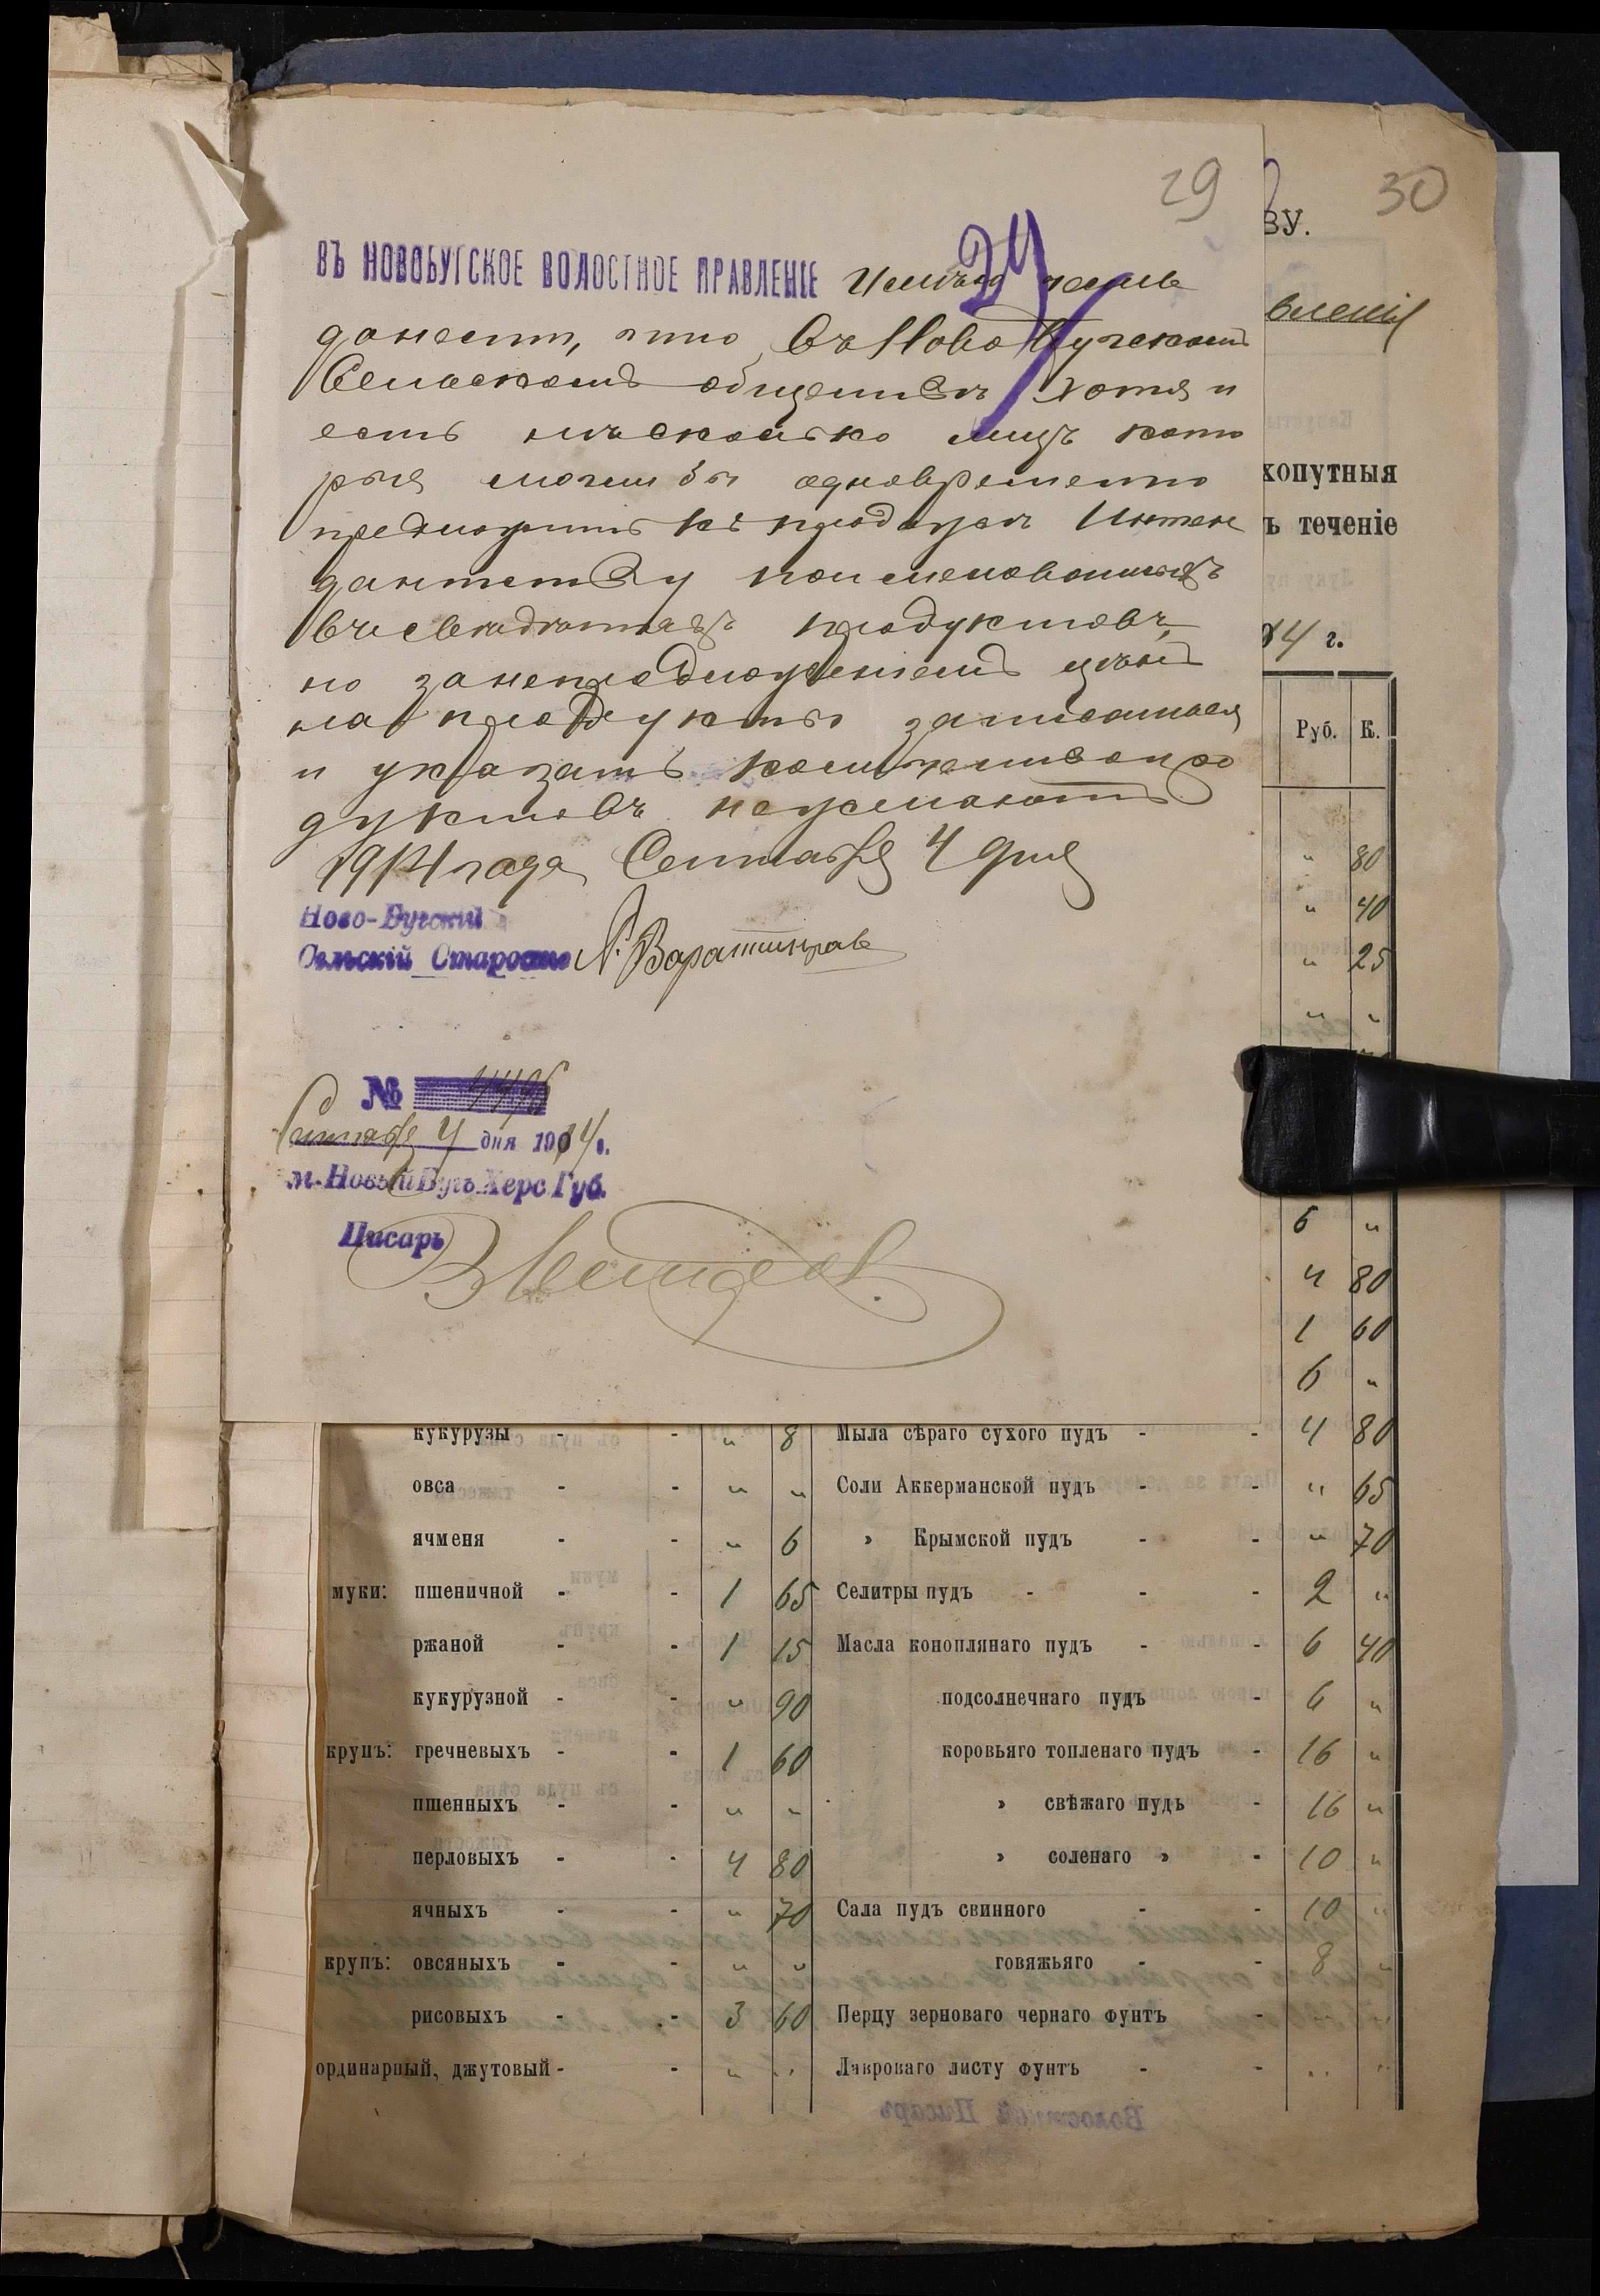 29
30
ВУ.
ВЪ НОВОБУГСКОЕ ВОЛОСТНОЕ ПРАВЛЕНІЕ Имѣю честь
вленія
донести, что въ Ново Бугскомъ
Сельскомъ обществѣ хотя и
есть нѣсколько лицъ кото
рые могли бы одновременно
хопутныя
предложить къ продажѣ Интен
ъ теченіе
дантству поименованныхъ
въ свѣдѣніяхъ продуктовъ,
14 г.
но за непредложеніемъ цѣнъ
на продукты
и указать количество про
Руб. К.
дуктовъ не желаютъ
1914 года Сентября 4 дня
" 80
" 40
Ново-Бугскій
Сельскій Староста
" 25
" "
№ 4496
Сентября 4 дня 1914 г.
м. Новый Бугъ Херс. Губ.
6 "
Писарь
4 80
1 60
6 "
кукурузы - - " 8 Мыла сѣраго сухого пудъ - - 4 80
овса - - " " Соли Аккерманской пудъ - - " 65
ячменя - - " 6 » Крымской пудъ - - " 70
муки: пшеничной - - 1 65 Селитры пудъ - - - 2 "
ржаной - - 1 15 Масла коноплянаго пудъ - - 6 40
кукурузной - - " 90 подсолнечнаго пудъ - 6 "
крупъ: гречневыхъ - - 1 60 коровьяго топленаго пудъ - 16 "
пшенныхъ - - " " » свѣжаго пудъ - 16 "
перловыхъ - - 4 80 » соленаго » - 10 "
ячныхъ - - " 70 Сала пудъ свинного - - 10 "
крупъ: овсяныхъ - - " " говяжьяго - - 8 "
рисовыхъ - - 3 60 Перцу зерноваго чернаго фунтъ - " "
ординарный, джутовый - - " " Лавроваго листу фунтъ - - " "